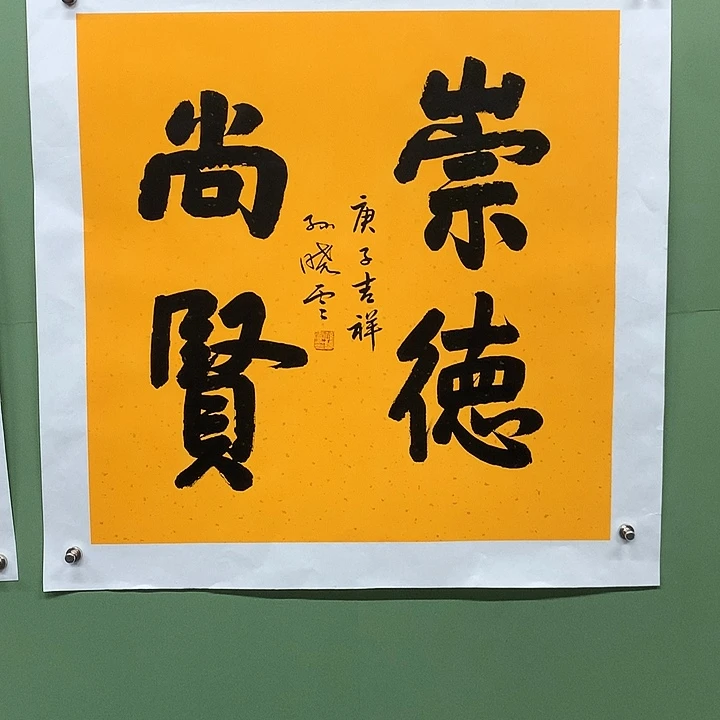 崇德
尚賢
庚子吉祥
孙晓云